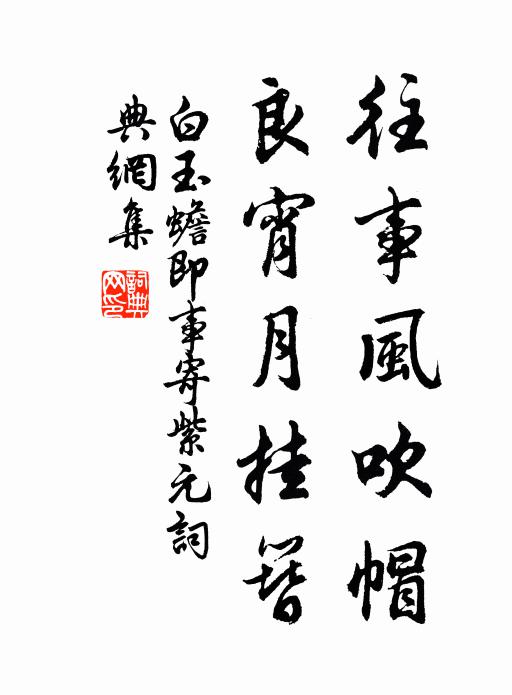 往事風吹帽
良宵月挂簪
白玉蟾即事寄紫元詞
典網集
詞典网印